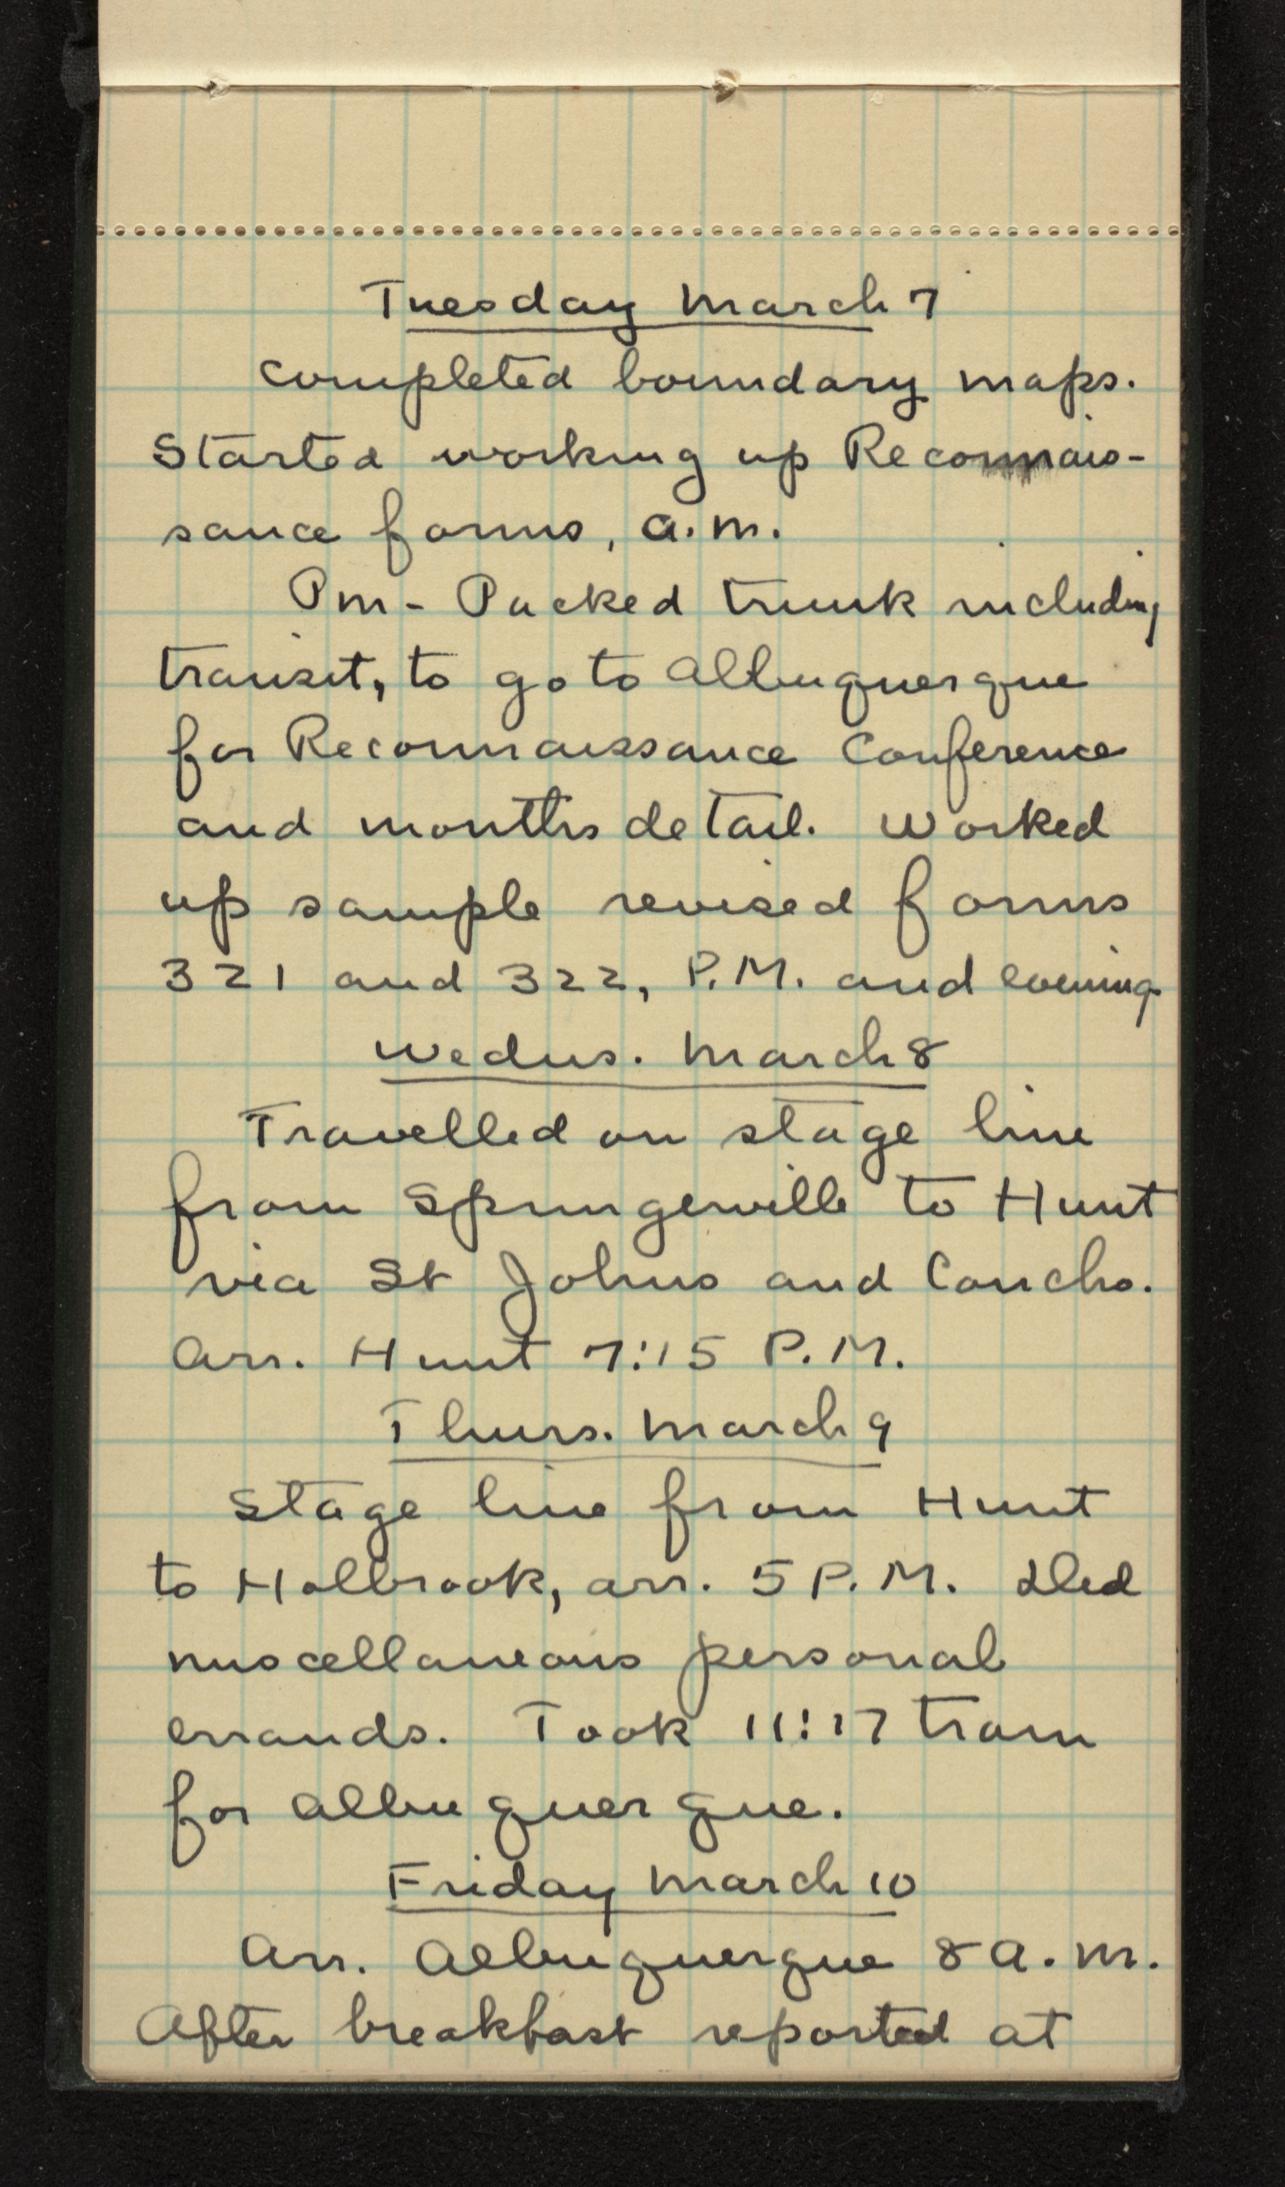 Tuesday March 7
Completed boundary maps.
Started working up Reconnais-
sance forms, a.m.
Pm - Packed trunk including
transit, to go to Albuquerque
for Reconnaissance Conference
and months detail. Worked
up sample revised forms
321 and 322, P.M. and evening.
Wednes. March 8
Travelled on stage line
from Springerville to Hunt
via St Johns and Concho.
Arr. Hunt 7:15 P.M.
Thurs. March 9
Stage line from Hunt
to Holbrook, arr. 5 P.M. Did
miscellaneous personal
errands. Took 11:17 train
for Albuquerque.
Friday March 10
Arr. Albuquerque 8 a.m.
After breakfast reported at